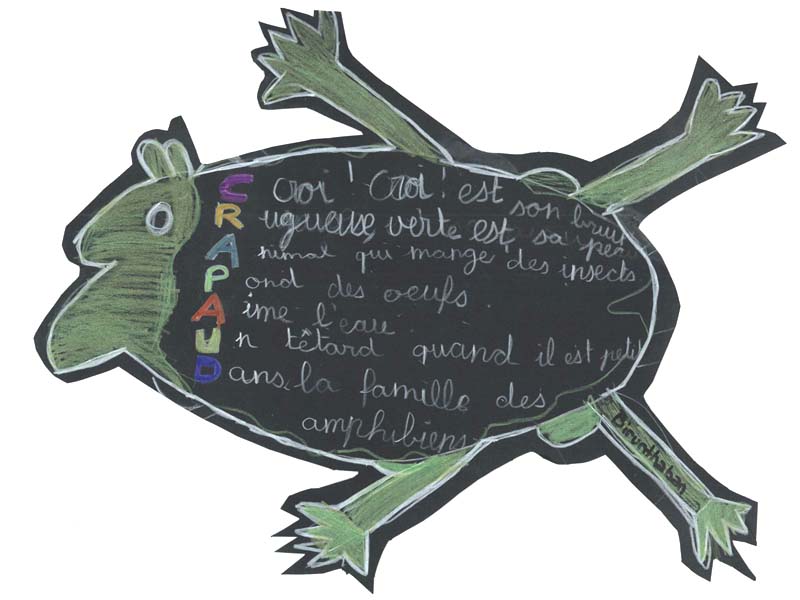 Croi ! Croi ! est son bruit
Rugueuse, verte est sa peau
Animal qui mange des insects
Pond des oeufs.
Aime l'eau.
Un têtard quand il est petit
Dans la famille des
amphibiens
birunthaban